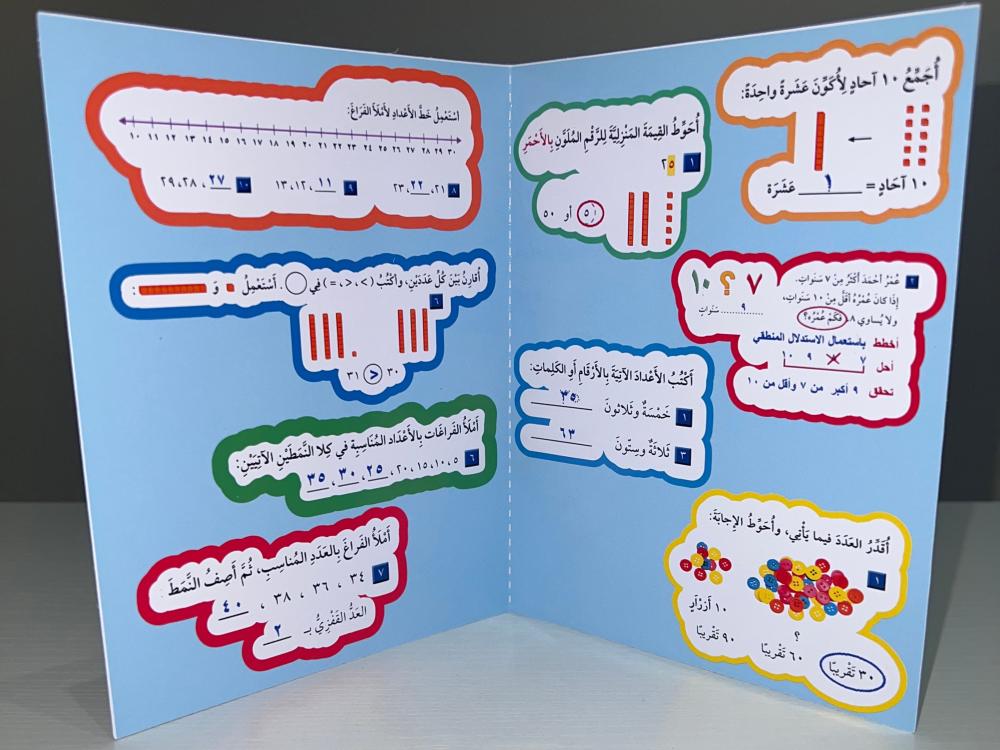 أُجَمِّعُ ١٠ آحادٍ لِأُكَوِّنَ عَشَرَةً واحِدَةً:
١٠ آحَادٍ = ١ عَشَرَة
أُحَوِّطُ القِيمَةَ المَنْزِلِيَّةَ لِلرَّقْمِ المُلَوَّنِ بِالأَحْمَرِ
١ ٢٥
٥ أو ٥٠
٢ عُمْرُ أَحْمَدَ أَكْثَرُ مِنْ ٧ سَنَواتٍ.
إِذَا كانَ عُمْرُهُ أَقَلَّ مِنْ ١٠ سَنَواتٍ،
ولا يُساوي ٨. فَكَمْ عُمْرُه؟
٧ ؟ ١٠
٩ سَنَواتٍ
أخطط باستعمال الاستدلال المنطقي
أحل ٧ ٩ ١٠
تحقق ٩ أكبر من ٧ وأقل من ١٠
أَكْتُبُ الأَعْدادَ الآتِيَةَ بِالأَرْقَامِ أَوِ الكَلِماتِ:
١ خَمْسَةٌ وثَلاثونَ ٣٥
٣ ثَلاثَةٌ وسِتّونَ ٦٣
أُقَدِّرُ العَدَدَ فيما يَأْتي، وأُحَوِّطُ الإِجابَةَ:
١
١٠ أَزْرارٍ
؟
٣٠ تَقْريبًا ٦٠ تَقْريبًا ٩٠ تَقْريبًا
أَسْتَعْمِلُ خَطَّ الأَعْدادِ لأَمْلَأَ الفَراغَ:
١٠ ١١ ١٢ ١٣ ١٤ ١٥ ١٦ ١٧ ١٨ ١٩ ٢٠ ٢١ ٢٢ ٢٣ ٢٤ ٢٥ ٢٦ ٢٧ ٢٨ ٢٩ ٣٠
٨ ٢١، ٢٢، ٢٣ ٩ ١١، ١٢، ١٣ ١٠ ٢٧، ٢٨، ٢٩
أُقارِنُ بَيْنَ كُلِّ عَدَدَيْنِ، وأَكْتُبُ (>، <، =) في ○. أَسْتَعْمِلُ وَ :
٦
٣٠ < ٣١
أَمْلَأُ الفَراغَاتِ بِالأَعْدَادِ المُنَاسِبَةِ في كِلا النَّمَطَيْنِ الآتِيَيْنِ:
٦ ٥، ١٠، ١٥، ٢٠، ٢٥، ٣٠، ٣٥
أَمْلَأُ الفَراغَ بِالعَدَدِ المُنَاسِبِ، ثُمَّ أَصِفُ النَّمَطَ
٧ ٣٤ ، ٣٦ ، ٣٨ ، ٤٠
العَدُّ القَفْزِيُّ بـ ٢